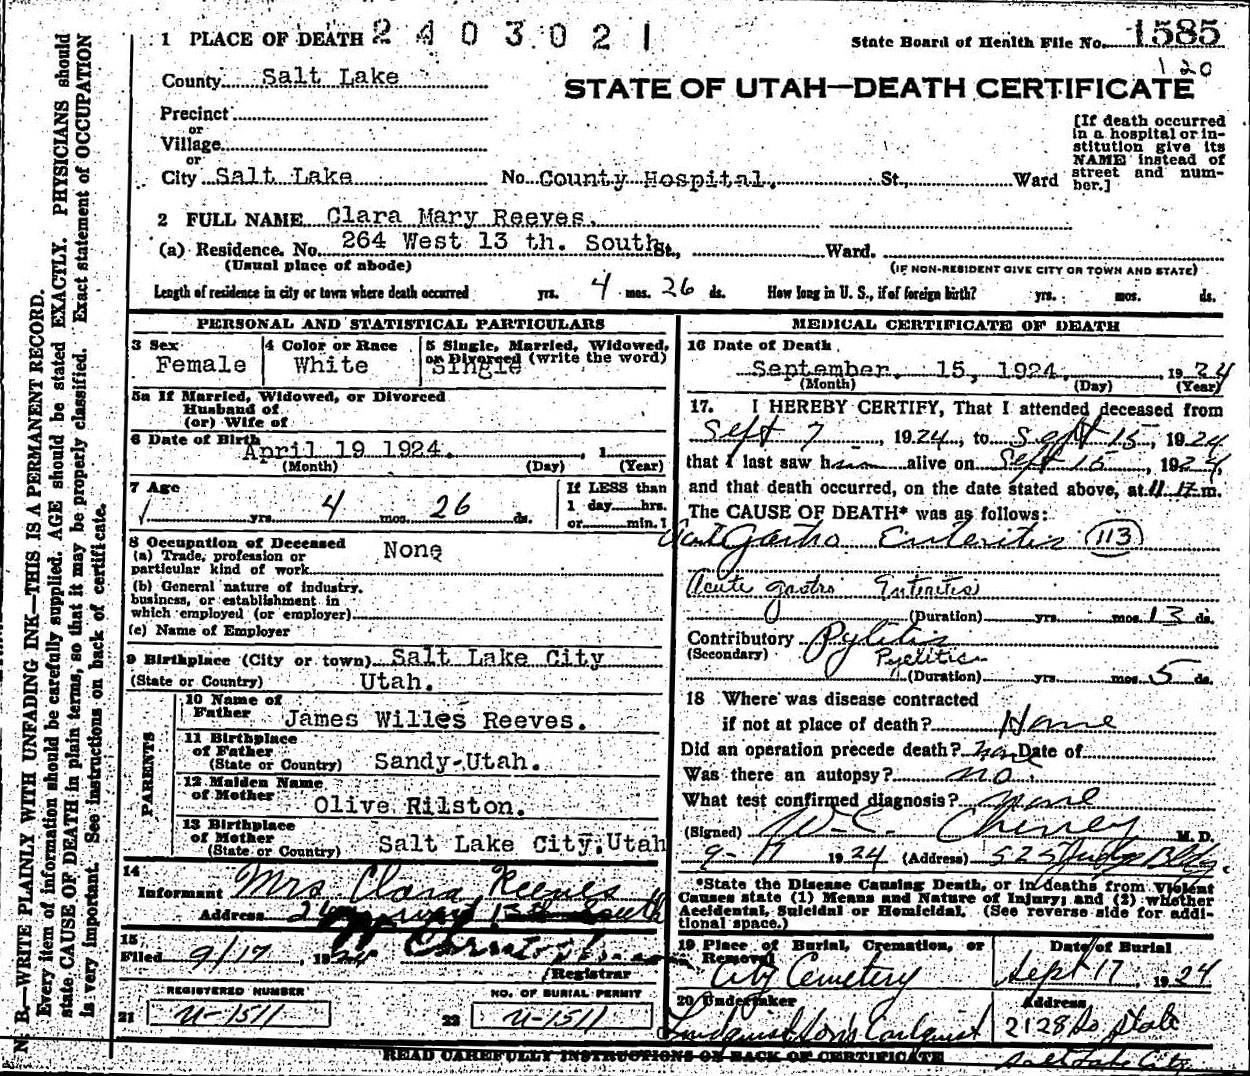 1 PLACE OF DEATH 2 4 0 3 0 2 1
State Board of Health File No. 1585
120
County Salt Lake
STATE OF UTAH—DEATH CERTIFICATE
Precinct
or
Village
or
City Salt Lake No County Hospital. St., Ward
[If death occurred
in a hospital or in-
stitution give its
NAME instead of
street and num-
ber.]
2 FULL NAME Clara Mary Reeves.
(a) Residence. No. 264 West 13 th. South St., Ward.
(Usual place of abode) (IF NON-RESIDENT GIVE CITY OR TOWN AND STATE)
Length of residence in city or town where death occurred yrs. 4 mos. 26 ds. How long in U. S., if of foreign birth? yrs. mos. ds.
PERSONAL AND STATISTICAL PARTICULARS
3 Sex
Female
4 Color or Race
White
5 Single, Married, Widowed,
or Divorced (write the word)
Single
5a If Married, Widowed, or Divorced
Husband of
(or) Wife of
6 Date of Birth
April 19 1924.
(Month) (Day) , 1 (Year)
7 Age
yrs. 4 mos. 26 ds.
If LESS than
1 day hrs.
or min.
8 Occupation of Deceased
None
(a) Trade, profession or
particular kind of work
(b) General nature of industry,
business, or establishment in
which employed (or employer)
(c) Name of Employer
9 Birthplace (City or town) Salt Lake City
(State or Country) Utah.
PARENTS
10 Name of
Father James Willes Reeves.
11 Birthplace
of Father
(State or Country) Sandy-Utah.
12 Maiden Name
of Mother Olive Rilston.
13 Birthplace
of Mother
(State or Country) Salt Lake City. Utah
14
Informant Mrs Clara Reeves
Address 13th South
15,
Filed 9/17, 1924
Registrar
REGISTERED NUMBER
21 U-1511
NO. OF BURIAL PERMIT
22 U-1511
MEDICAL CERTIFICATE OF DEATH
16 Date of Death
September. 15, 1924, 1924
(Month) (Day) (Year)
17. I HEREBY CERTIFY, That I attended deceased from
Sept 7, 1924, to Sept 15, 1924
that I last saw h alive on Sept 15, 1924,
and that death occurred, on the date stated above, at 11 17 m.
The CAUSE OF DEATH* was as follows:
Acute Gastro Enteritis (113)
Acute gastro Enteritis
(Duration) yrs. mos. 13 ds.
Contributory Pyelitis
(Secondary) Pyelitis
(Duration) yrs. mos. 5 ds.
18 Where was disease contracted
if not at place of death? Home
Did an operation precede death? no Date of
Was there an autopsy? no
What test confirmed diagnosis? none
(Signed) W. C. Cheney M. D.
9-17 1924 (Address) 525 Judge Bldg.
*State the Disease Causing Death, or in deaths from Violent
Causes state (1) Means and Nature of Injury; and (2) whether
Accidental, Suicidal or Homicidal. (See reverse side for addi-
tional space.)
19 Place of Burial, Cremation, or
Removal
City Cemetery
Date of Burial
Sept 17 1924
20 Undertaker
Address
2128 So State
Salt Lake City
READ CAREFULLY INSTRUCTIONS ON BACK OF CERTIFICATE
N. B.—WRITE PLAINLY WITH UNFADING INK—THIS IS A PERMANENT RECORD.
Every item of information should be carefully supplied. AGE should be stated EXACTLY. PHYSICIANS should
state CAUSE OF DEATH in plain terms, so that it may be properly classified. Exact statement of OCCUPATION
is very important. See instructions on back of certificate.